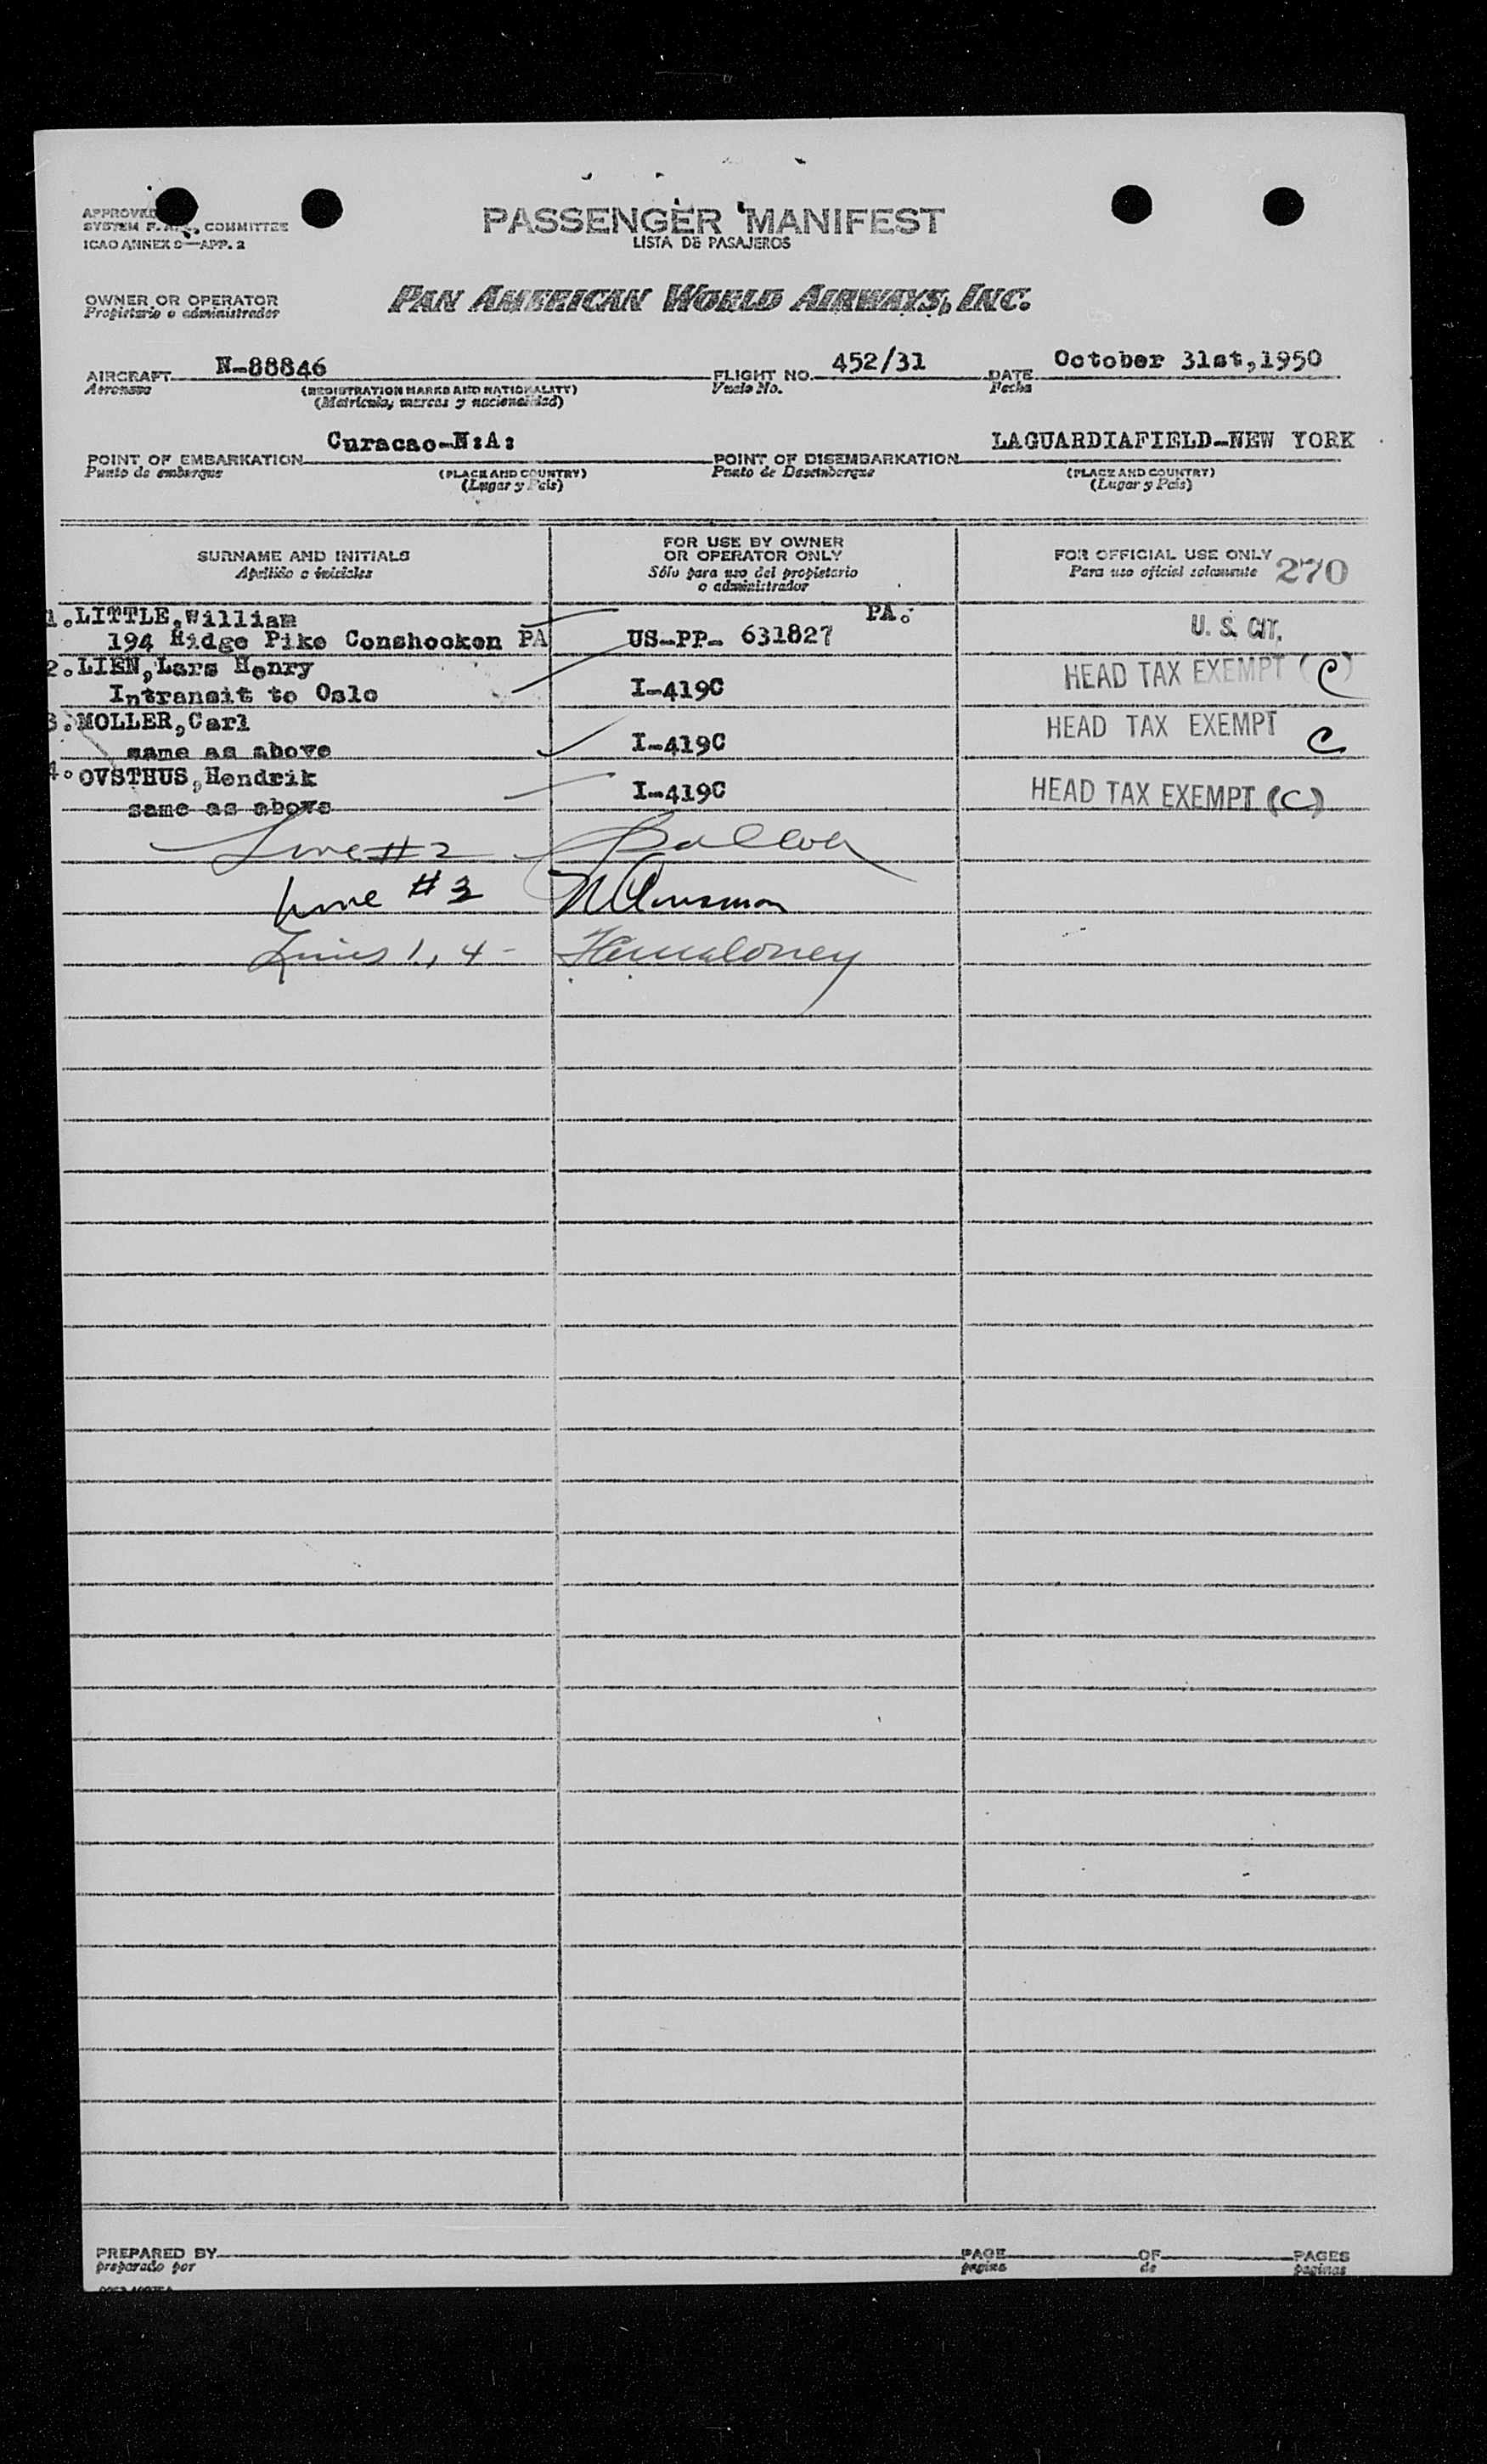 APPROVED
SYSTEM F. COMMITTEE
ICAO ANNEX 9—APP. 2
PASSENGER MANIFEST
LISTA DE PASAJEROS
OWNER OR OPERATOR
Propietario o administrador
PAN AMERICAN WORLD AIRWAYS, INC.
AIRCRAFT N-88846 FLIGHT NO. 452/31 DATE October 31st,1950
Aeronave (REGISTRATION MARKS AND NATIONALITY) Vuelo No. Fecha
(Matricula, marcas y nacionalidad)
POINT OF EMBARKATION Curacao-N:A: POINT OF DISEMBARKATION LAGUARDIAFIELD-NEW YORK
Punto de embarque (PLACE AND COUNTRY) Punto de Desembarque (PLACE AND COUNTRY)
(Lugar y Pais) (Lugar y Pais)
SURNAME AND INITIALS
Apellido o iniciales
FOR USE BY OWNER
OR OPERATOR ONLY
Sólo para uso del propietario
o administrador
FOR OFFICIAL USE ONLY 270
Para uso oficial solamente
1.LITTLE,William PA.
194 Ridge Pike Conshocken PA US-PP- 631827 U. S. CIT.
2.LIEN,Lars Henry
Intransit to Oslo I-419C HEAD TAX EXEMPT (C)
3.MOLLER,Carl
same as above I-419C HEAD TAX EXEMPT C
4.OVSTHUS,Hendrik
same as above I-419C HEAD TAX EXEMPT (C)
Line #2
Line #3
Lines 1, 4-
PREPARED BY PAGE OF PAGES
preparado por pagina de paginas